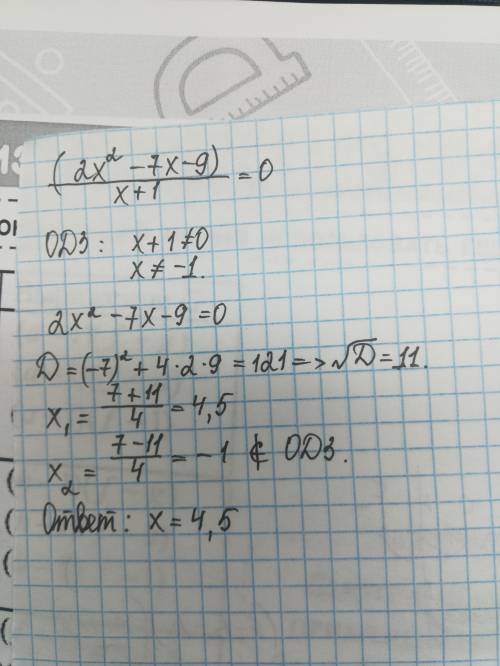 (2x² - 7x - 9) / x + 1 = 0
ОДЗ: x + 1 ≠ 0
x ≠ -1.
2x² - 7x - 9 = 0
D = (-7)² + 4 · 2 · 9 = 121 => √D = 11.
x₁ = 7 + 11 / 4 = 4,5
x₂ = 7 - 11 / 4 = -1 ∉ ОДЗ.
Ответ: x = 4,5